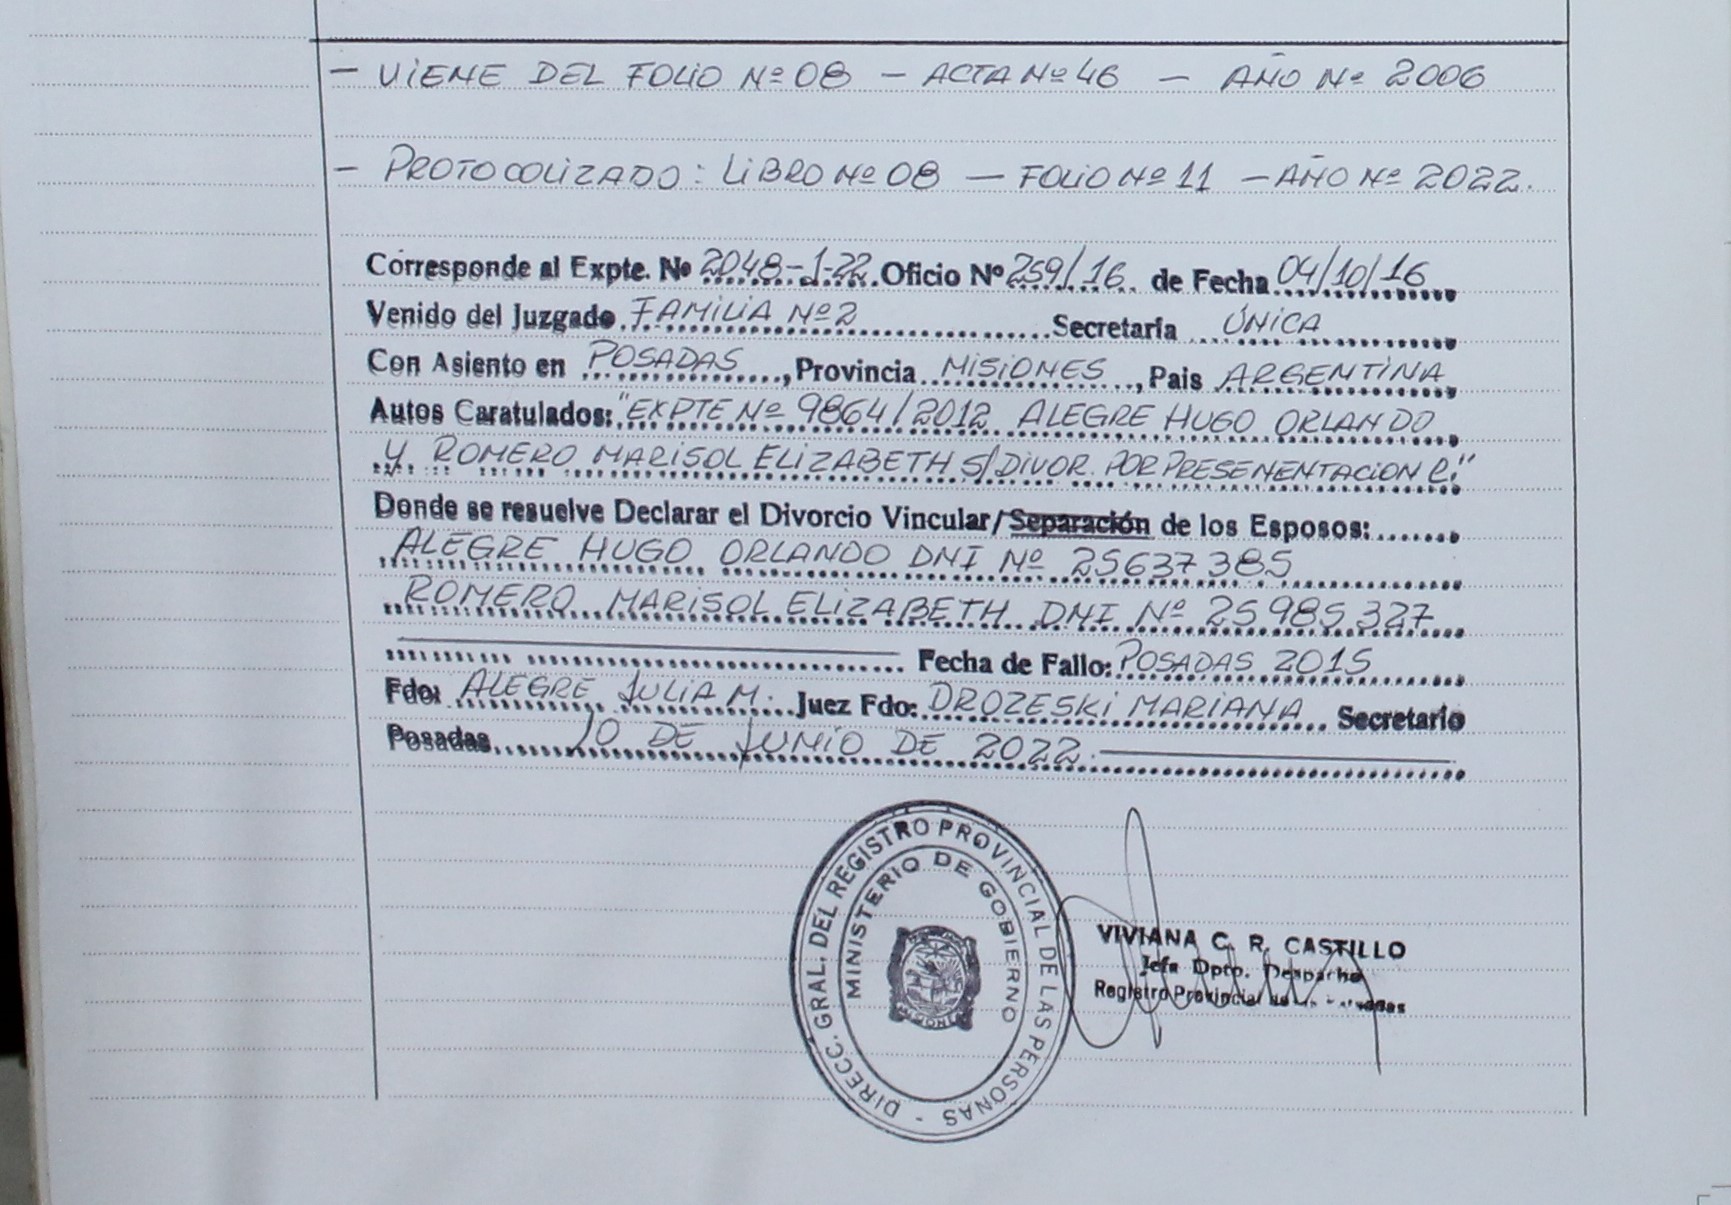 - VIENE DEL FOLIO Nº 08 - ACTA Nº 46 - AÑO Nº 2006
- PROTOCOLIZADO: LIBRO Nº 08 - FOLIO Nº 11 - AÑO Nº 2022.
Corresponde al Expte. Nº 2048-1-22. Oficio Nº 259/16. de Fecha 04/10/16
Venido del Juzgado FAMILIA Nº2 Secretaría ÚNICA
Con Asiento en POSADAS, Provincia MISIONES, Pais ARGENTINA
Autos Caratulados: "EXPTE Nº 9864/2012 ALEGRE HUGO ORLANDO
Y ROMERO MARISOL ELIZABETH S/DIVOR. POR PRESENENTACION C."
Donde se resuelve Declarar el Divorcio Vincular/Separación de los Esposos:
ALEGRE HUGO ORLANDO DNI Nº 25637385
ROMERO MARISOL ELIZABETH DNI Nº 25985327
Fecha de Fallo: POSADAS 2015
Fdo: ALEGRE JULIA M. Juez Fdo: DROZESKI MARIANA Secretario
Posadas 10 DE JUNIO DE 2022.
DIRECC. GRAL. DEL REGISTRO PROVINCIAL DE LAS PERSONAS -
MINISTERIO DE GOBIERNO
VIVIANA C. R. CASTILLO
Jefa Dpto. Despacho
Registro Provincial de